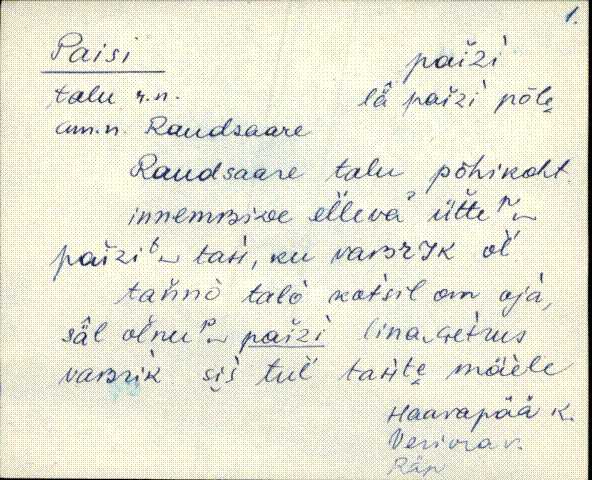 1.
Paisi paižì
talu r.n. lǟ paižì põlẹ
am.n. Raudsaare
Raudsaare talu põhikoht
innemʙize ellevàˀ üttep‿
paižit‿ taħ, ku vaʙrɪk ol̆
tañnò talò kotsil om oja,
säl olnup‿ paižì lina ketrus
vaʙrìk siś tul̆ taħtẹ mäele
Haavapää k.
Veriora v.
Räp